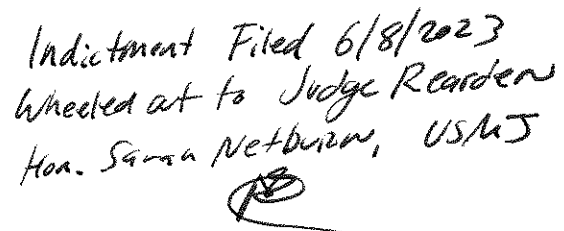 Indictment Filed 6/8/2023
Wheeled out to Judge Rearden
Hon. Sarah Netburn, USMJ